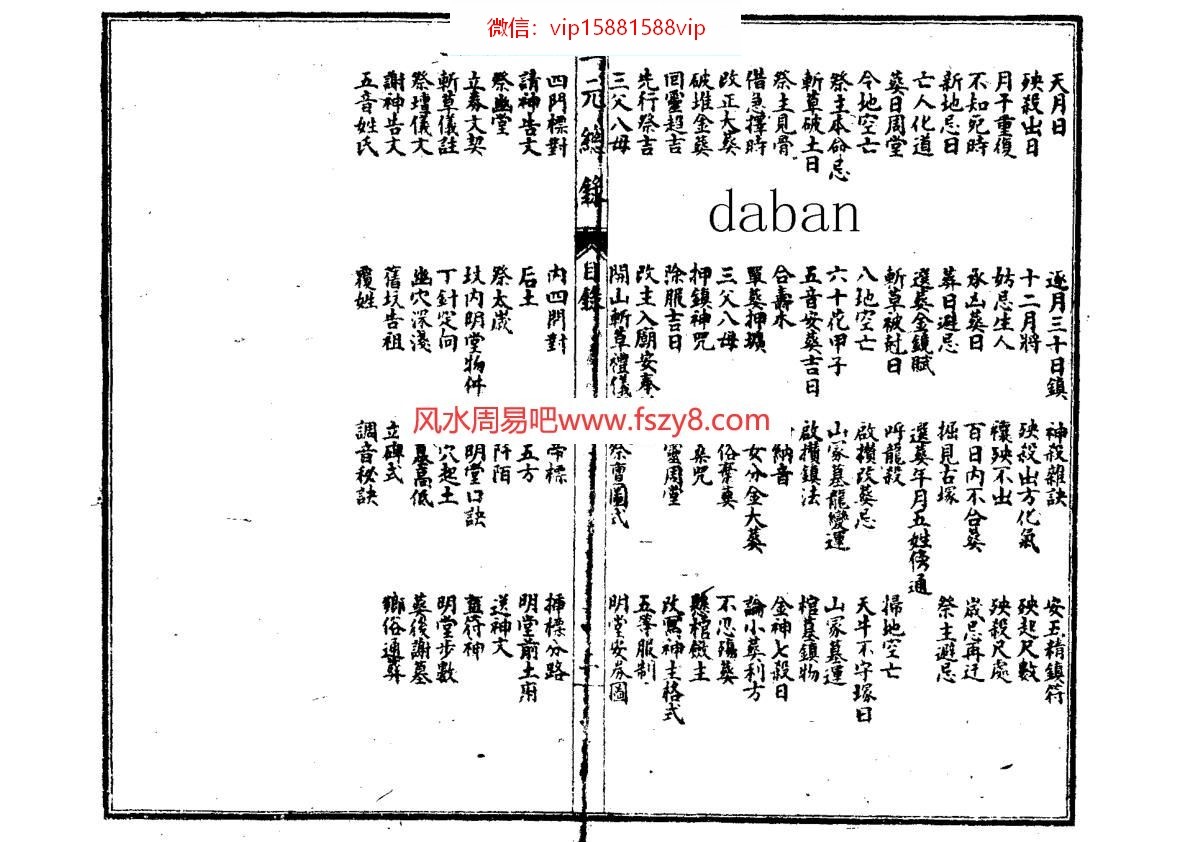 微信：vip15881588vip
天月日 逐月三十日鎮 神殺雜訣 安五精鎮符
殃殺出日 十二月將 殃殺出方化氣 殃起尺數
月干重復 妨忌生人 禳殃不出 殃殺尺處
不知死時 承凶葬日 百日内不合葬 歲忌再迁
新地忌日 葬日避忌 掘見古塚 祭主避忌
亡人化道 選葬金鏡賦 選葬年月五姓傍通
葬日周堂 斬草破射日 呼龍殺 掃地空亡
令地空亡 八地空亡 啟攢改葬忌 天牛不守塚日
祭主本命忌 六十花甲子 山冢墓龍變運 山冢墓運
斬草破土日 五音安葬吉日 啟攢鎮法 棺墓鎮物
祭主見骨 合壽木 納音 金神七殺日
借急擇時 單葬押壙 女分金大葬 論小葬利方
改正大葬 三父八母 俗棄葬 不忍殤葬
破堆金葬 押鎮神咒 桑咒 懸棺毀主
回靈趨吉 除服吉日 靈周堂 改寫神主格式
先行祭吉 改主入廟安奉 五等服制
三父八母 開山斬草禮儀 祭壇圖式 明堂安券圖
三元總錄 目錄
四門標對 内四門對 帝標 插標分路
請神告文 后土 五方 明堂前土府
祭幽堂 祭太歲 阡陌 送神文
立券文契 坟内明堂物件 明堂口訣 蓋符神
斬草儀註 丁針定向 穴起土 明堂步數
祭壇儀文 幽穴深淺 墓高低 葬後謝墓
謝神告文 舊坟告祖 立碑式 鄉俗通葬
五音姓氏 覆姓 調音秘訣
daban
风水周易吧www.fszy8.com